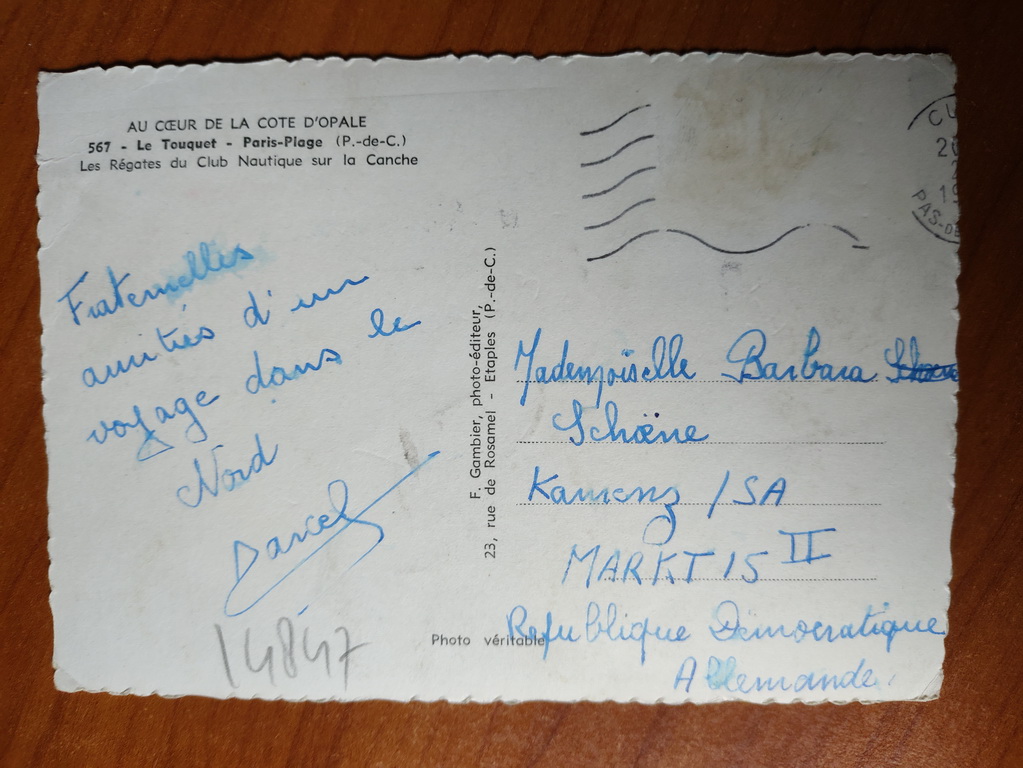 AU CŒUR DE LA COTE D'OPALE
567 - Le Touquet - Paris-Plage (P.-de-C.)
Les Régates du Club Nautique sur la Canche
Fraternelles
amitiés d'un
voyage dans le
Nord
14847
F. Gambier, photo-éditeur,
23, rue de Rosamel - Etaples (P.-de-C.)
Photo véritable
PAS-DE
Mademoiselle Barbara
Schöene
Kamenz / SA
MARKT 15 II
République Démocratique
Allemande.